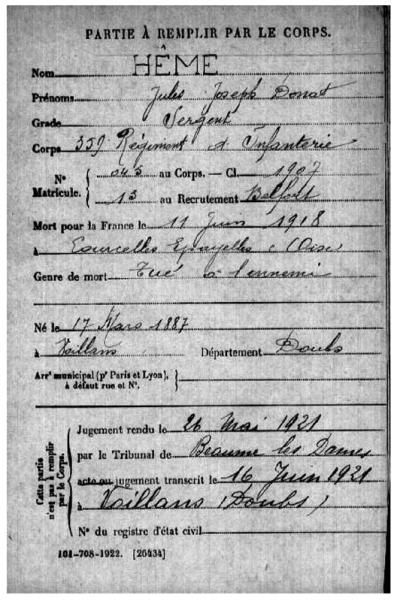 PARTIE À REMPLIR PAR LE CORPS.
Nom HÊME
Prénoms Jules Joseph Donat
Grade Sergent
Corps 359 Régiment d'Infanterie
N° Matricule. { 043 au Corps. — Cl 1907
13 au Recrutement Belfort
Mort pour la France le 11 Juin 1918
à Courcelles Epayelles (Oise
Genre de mort Tué à l'ennemi
Né le 17 Mars 1887
à Vaillans Département Doubs
Arr' municipal (p' Paris et Lyon),
à défaut rue et N°.
Cette partie n'est pas à remplir par le Corps.
Jugement rendu le 26 Mai 1921
par le Tribunal de Beaume les Dames
acte ou jugement transcrit le 16 Juin 1921
à Vaillans (Doubs)
N° du registre d'état civil
101-708-1922. [26434]